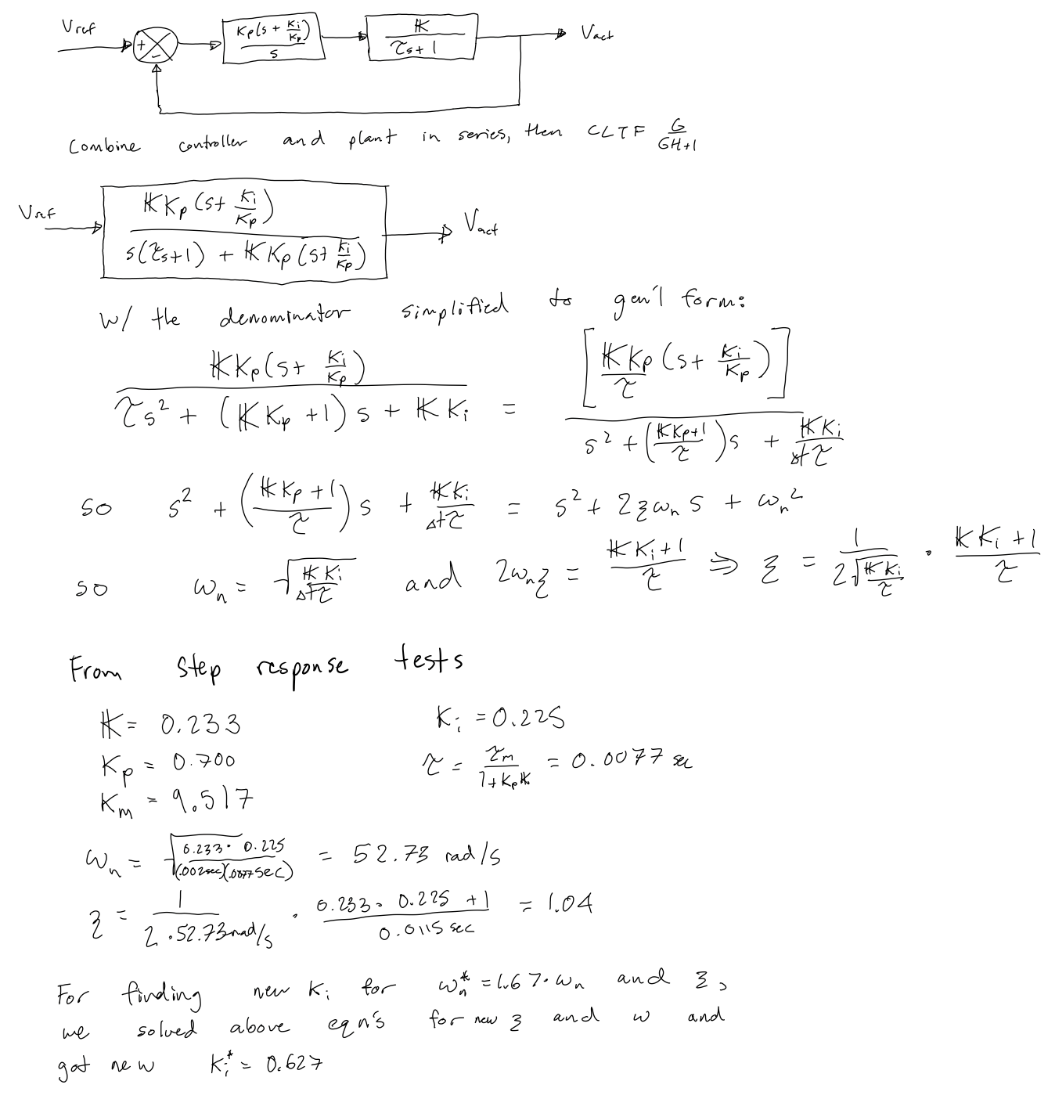 Vref + - Kp(s + Ki/Kp)/s 𝕂/(τs+1) Vact
Combine controller and plant in series, then CLTF G/(GH+1)
Vref 𝕂Kp(s+ Ki/Kp)/(s(τs+1) + 𝕂Kp(s+ Ki/Kp)) Vact
w/ the denominator simplified to gen'l form:
𝕂Kp(s+ Ki/Kp)/(τs² + (𝕂Kp+1)s + 𝕂Ki) = [𝕂Kp/τ (s+ Ki/Kp)]/(s² + (𝕂Kp+1/τ)s + 𝕂Ki/Δtτ)
so s² + (𝕂Kp+1/τ)s + 𝕂Ki/Δtτ = s² + 2ξωn s + ωn²
so ωn = √(𝕂Ki/Δtτ) and 2ωnξ = 𝕂Ki+1/τ ⇒ ξ = 1/(2√(𝕂Ki/τ)) · 𝕂Ki+1/τ
From step response tests
𝕂 = 0.233 Ki = 0.225
Kp = 0.700 τ = τm/(1+Kp𝕂) = 0.0077 sec
Km = 9.517
ωn = √(0.233 · 0.225/(.002sec)(.0077sec)) = 52.73 rad/s
ξ = 1/(2 · 52.73rad/s) · 0.233 · 0.225 + 1/0.0115 sec = 1.04
For finding new Ki for ωn* = 1.67 · ωn and ξ,
we solved above eqn's for new ξ and w and
got new Ki* = 0.627